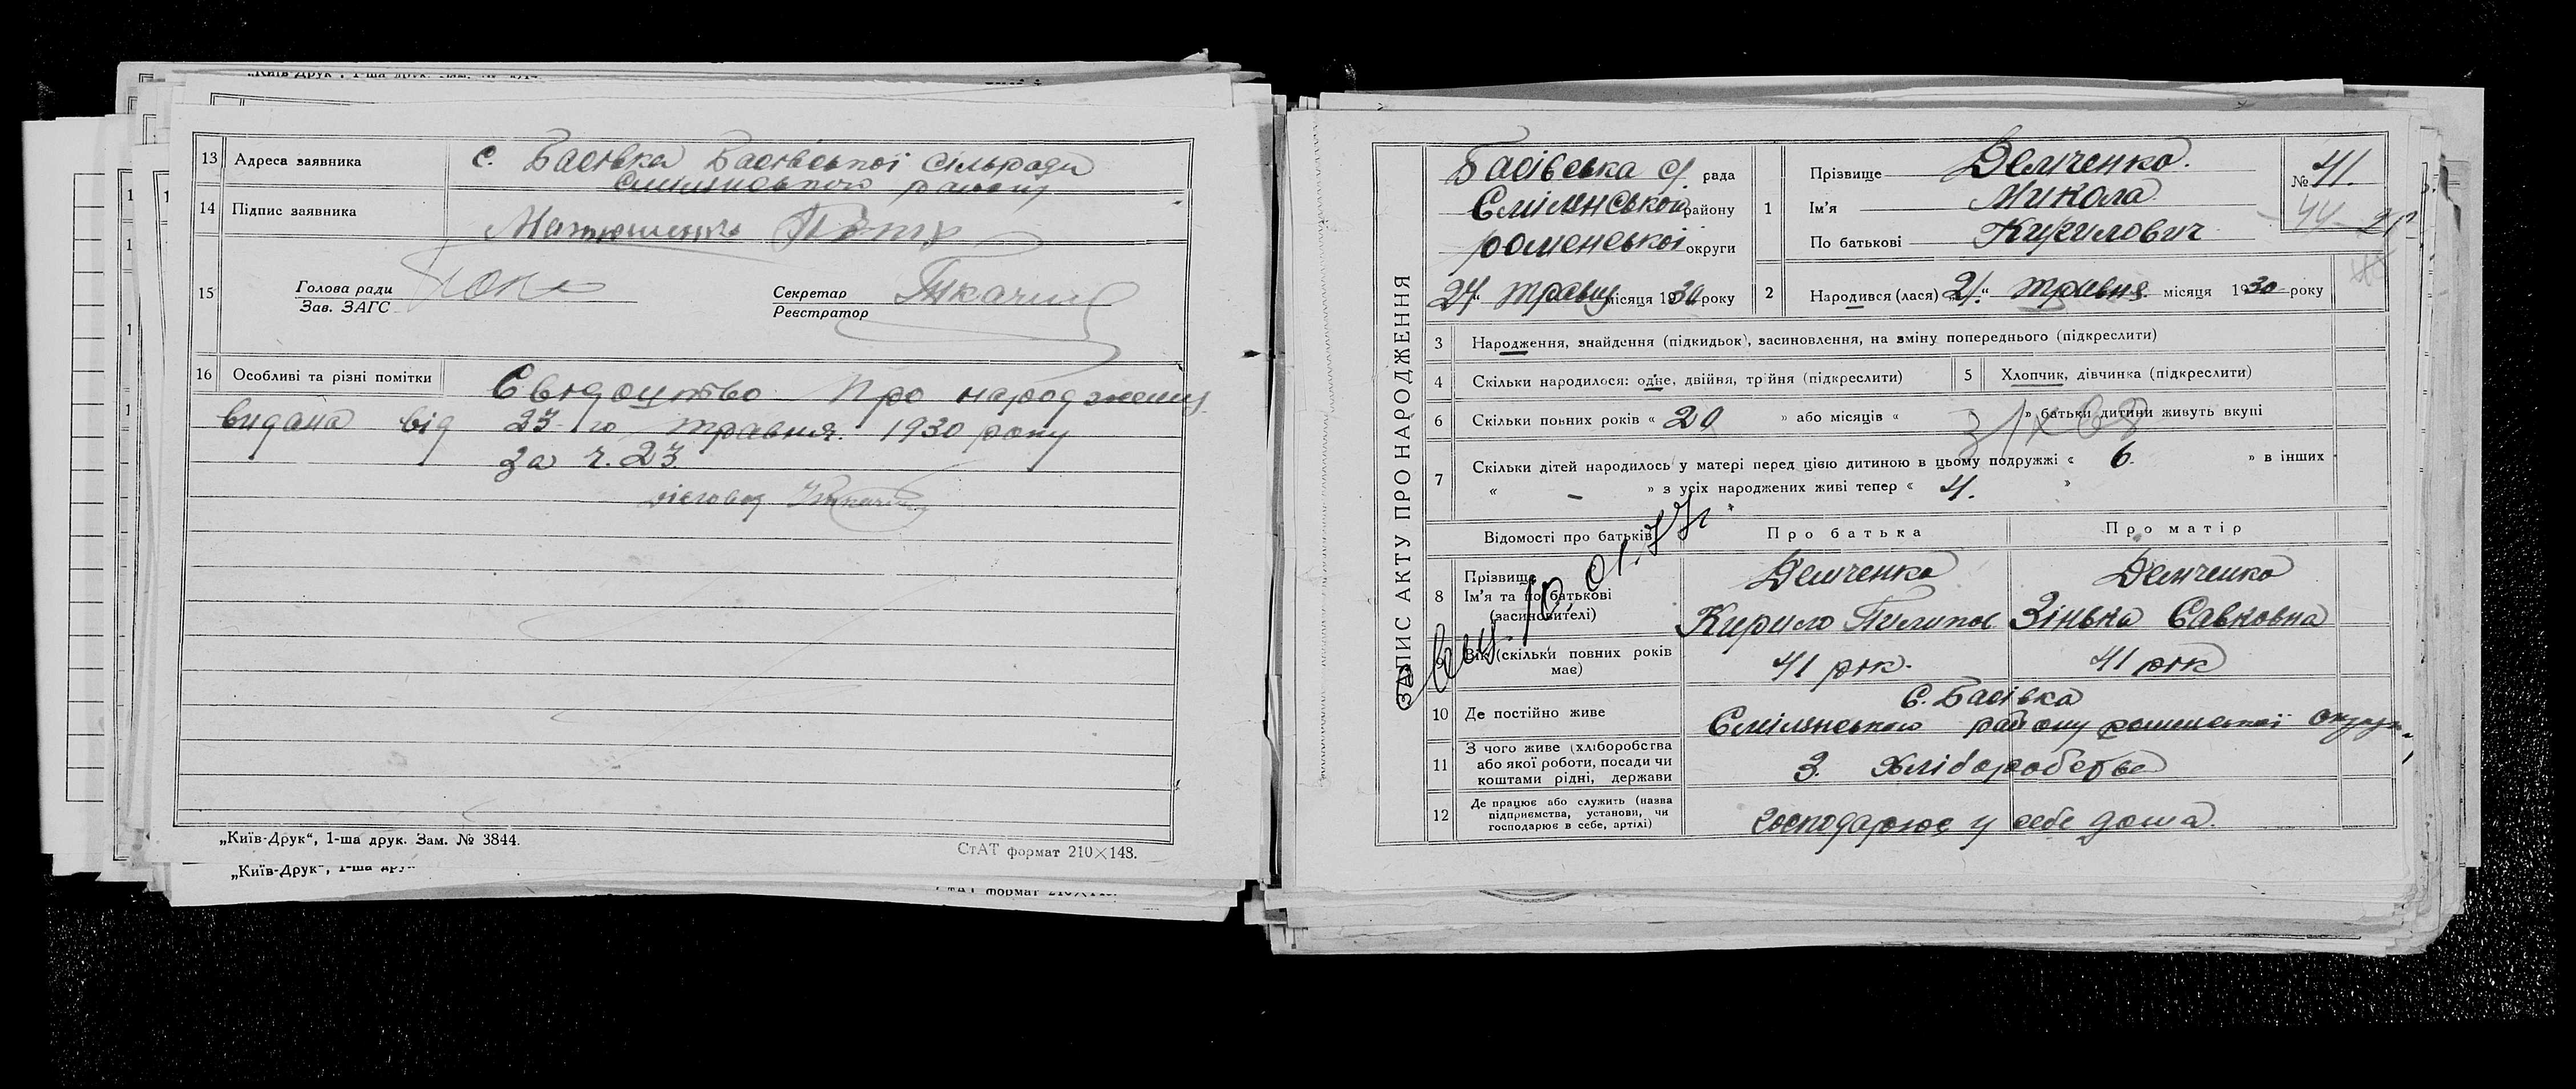 „Київ-Друк“, 1-ша друк. Зам. №
13 Адреса заявника с. Басівка Басівської сільради
Смілянського району
14 Підпис заявника Матюшенко
15 Голова ради Секретар Ткачи
Зав. ЗАГС Реєстратор
16 Особливі та різні помітки Свидоцтво Про народження
видана від 23 го травня 1930 року
за ч. 23.
„Київ-Друк“, 1-ша друк. Зам. № 3844.
СтАТ формат 210×148.
„Київ-Друк“, 1-ша
ЗАПИС АКТУ ПРО НАРОДЖЕННЯ
Басівська с/ рада
Смілянської району
роменської округи
24 „ травня місяця 1930 року
1 Прізвище Демченко
Ім'я Микола
По батькові Кирилович
№ 41.
44
2 Народився (лася) „21.“ травня місяця 1930 року
3 Народження, знайдення (підкидьок), засиновлення, на зміну попереднього (підкреслити)
4 Скільки народилося: одне, двійня, трійня (підкреслити)
5 Хлопчик, дівчинка (підкреслити)
6 Скільки повних років « 20 » або місяців « » батьки дитини живуть вкупі
7 Скільки дітей народилось у матері перед цією дитиною в цьому подружжі « 6. » в інших
« – » з усіх народжених живі тепер « 4. »
Відомості про батьків Про батька Про матір
8 Прізвище Демченко Демченко
Ім'я та по батькові
(засиновителі) Кирило Пилипов Зінька Савковна
Вік (скільки повних років
має) 41 рік. 41 рік
10 Де постійно живе С. Басівка
Смілянського району роменської округи
11 З чого живе (хліборобства
або якої роботи, посади чи
коштами рідні, держави З. Хліборобства
12 Де працює або служить (назва
підприємства, установи, чи
господарює в себе, артілі) господарює у себе дома.